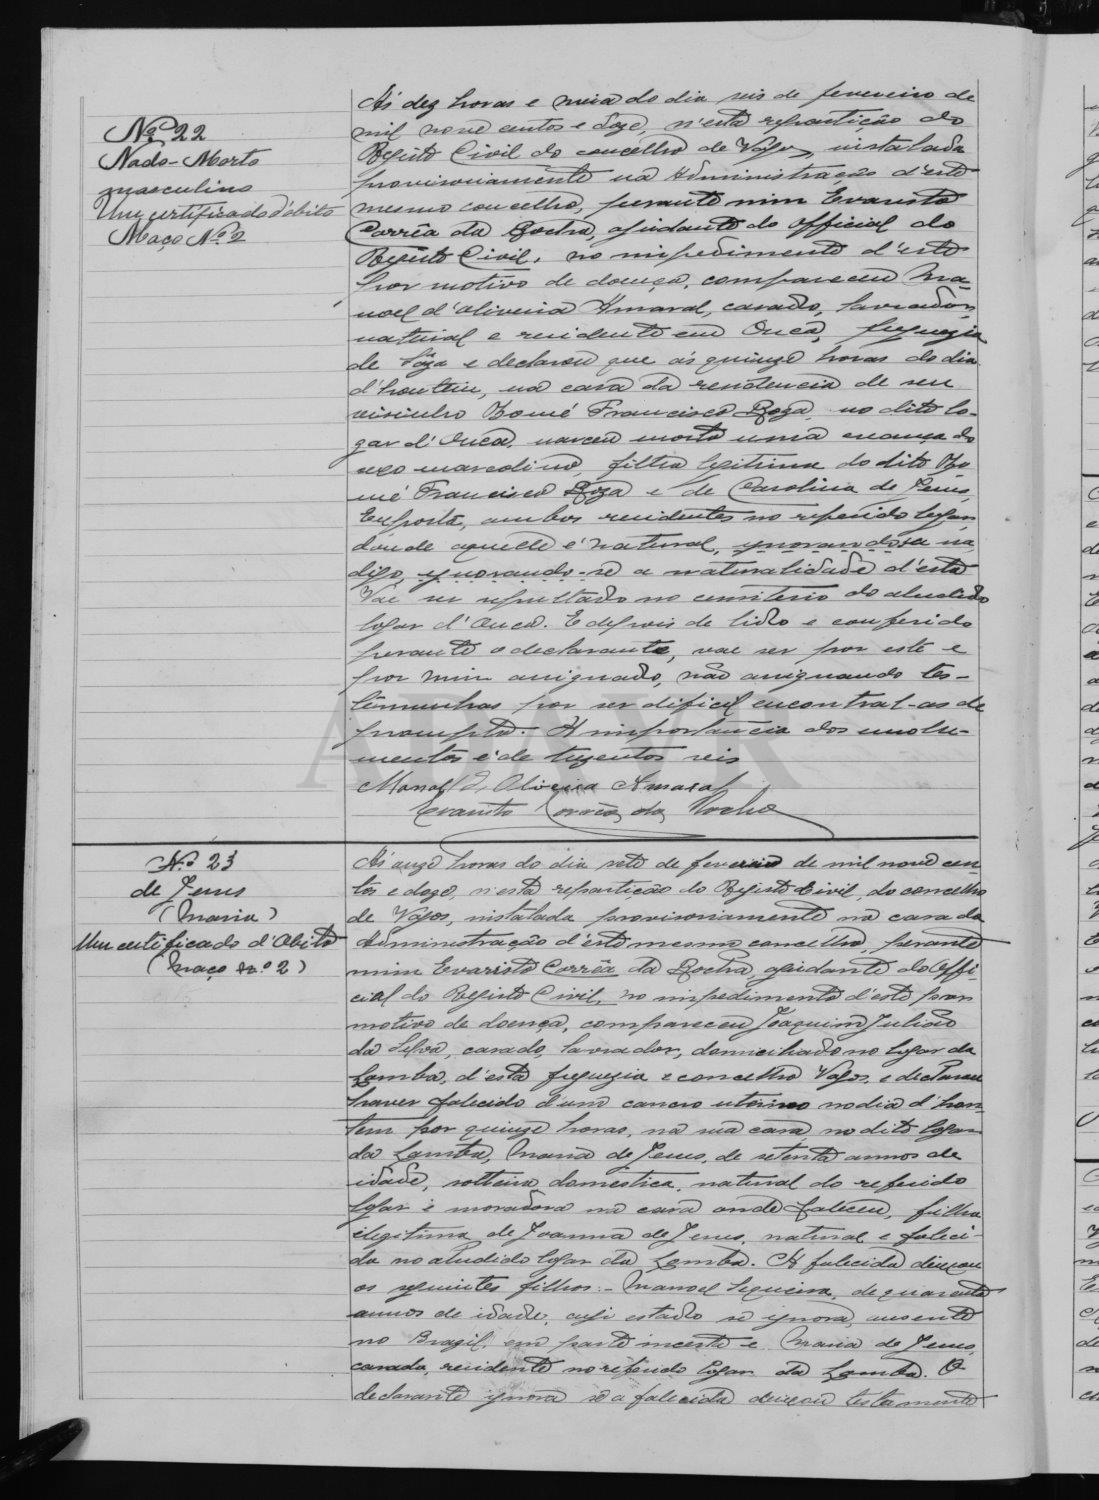 Nº 22
Nado-Morto
masculino
Um certificado d'obito
Maço Nº 2
Ás dez horas e meia do dia seis de fevereiro de
mil nove centos e doze, n'esta repartição do
Registo Civil do concelho de Vagos, installada
provisoriamente na Administração d'este
mesmo concelho, perante mim Evaristo
Corrêa da Rocha, ajudante do Official do
Registo Civil, no impedimento d'este
por motivo de doença, compareceu Ma-
noel d'Oliveira Amaral, casado, lavrador,
natural e residente em Ouca, freguezia
de Sôza e declarou que ás quinze horas do dia
d'hontem, na casa da residencia de seu
visinho Thomé Francisco Roza, no dito lo-
gar d'Ouca, nasceu morta uma creança do
sexo masculino, filha legitima do dito Tho
mé Francisco Roza e de Carolina de Jesus,
Exposta, ambos residentes no referido logar,
donde aquelle é natural, ignorando-se na,
digo, ignorando-se a naturalidade d'esta
Vae ser sepultado no cemiterio do aludido
logar d'Ouca. E depois de lido e conferido
perante o declarante, vae ser por este e
por mim assignado, não assignando tes-
temunhas por ser dificil encontral-as de
prompto. A importancia dos emolu-
mentos é de trezentos reis
Manoel d'Oliveira Amaral
Evaristo Corrêa da Rocha
Nº 23
de Jesus
(Maria)
Um certificado d'Obito
(Maço nº 2)
Ás onze horas do dia sete de fevereiro de mil nove cen-
tos e doze, n'esta repartição do Registo Civil, do concelho
de Vagos, installada provisoriamente na casa da
Administração d'este mesmo concelho, perante
mim Evaristo Corrêa da Rocha, ajudante do Offi-
cial do Registo Civil, no impedimento d'este por
motivo de doença, compareceu Joaquim Julião
da Silva, casado, lavrador, domiciliado no logar da
Lomba, d'esta freguezia e concelho Vagos, e declarou
haver falecido d'um cancro uterino no dia d'hon-
tem por quinze horas, na sua casa no dito logar
da Lomba, Maria de Jesus, de setenta annos de
idade, solteira, domestica, natural do referido
logar e moradora na casa onde faleceu, filha
ilegitima de Joanna de Jesus, natural e faleci-
da no aludido logar da Lomba. A falecida deixou
os seguintes filhos:- Manoel Sequeira, de quarenta
annos de idade, cujo estado se ignora, ausente
no Brazil, em parte incerta e Maria de Jesus,
casada, residente no referido logar da Lomba. O
declarante ignora se a falecida deixou testamento